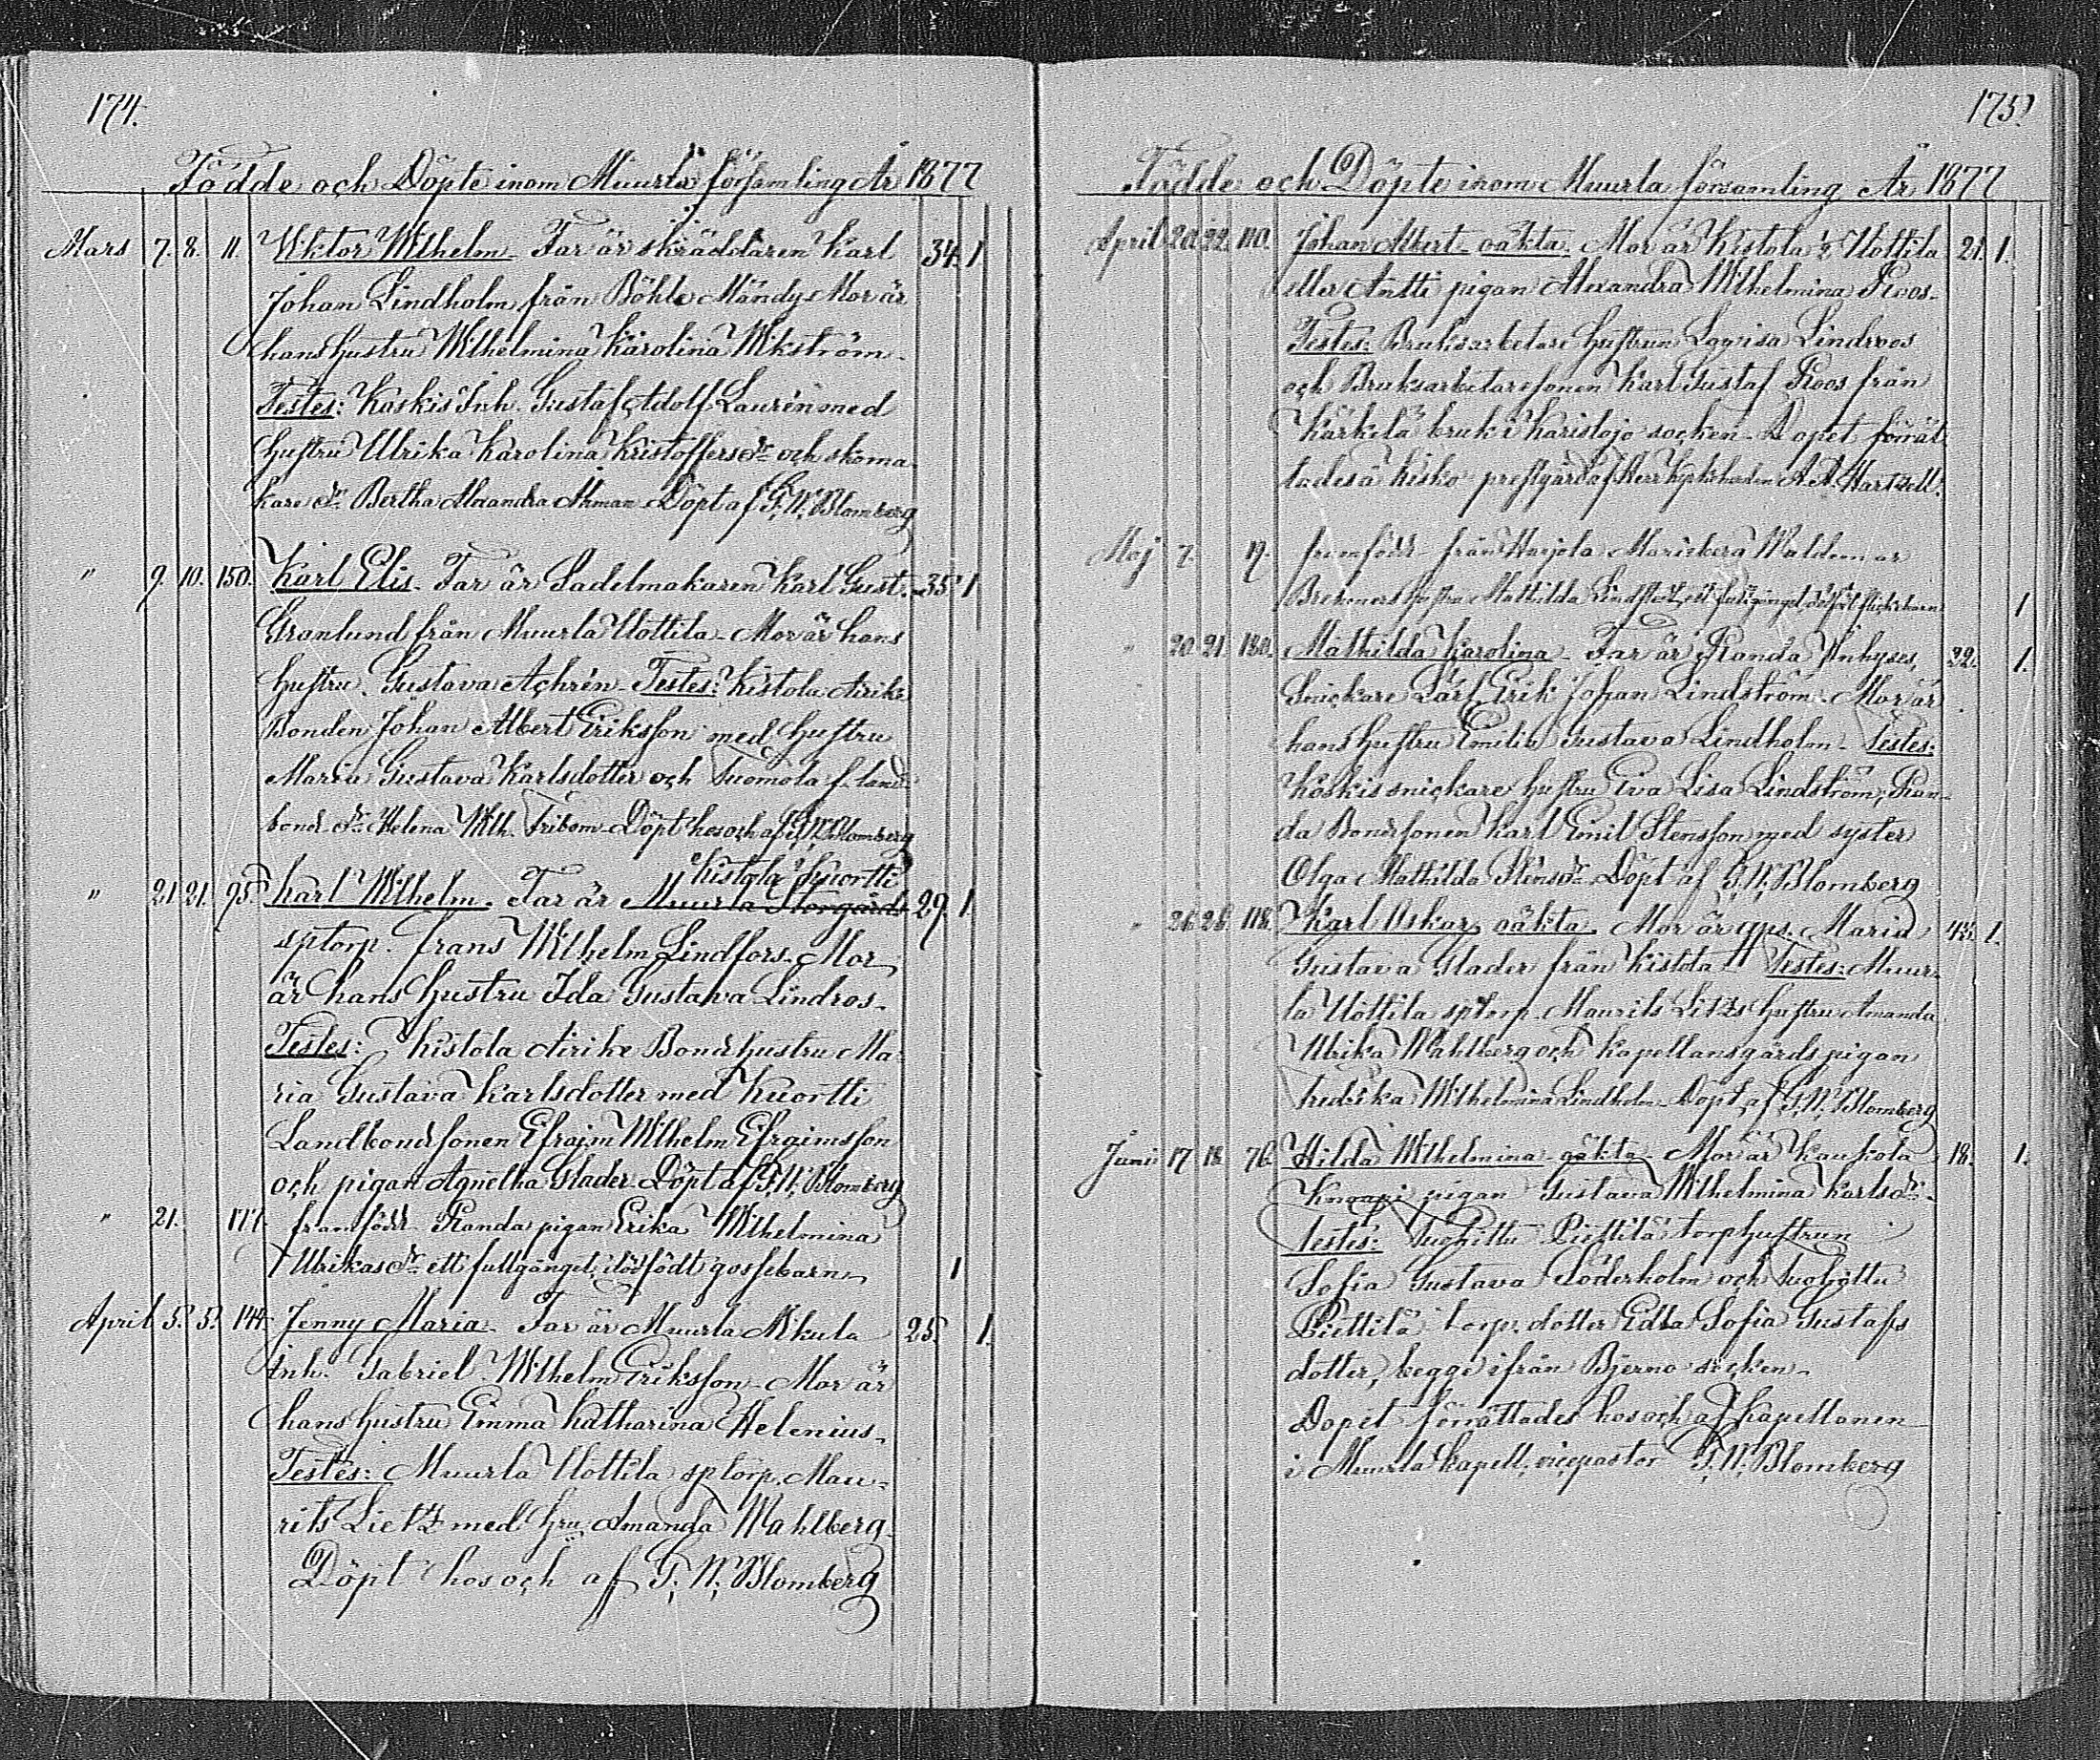 174.
Födde och Döpte inom Muurla församling År 1877
Mars 7. 8. 11. Wiktor Wilhelm. Far är skräddaren Karl 34. 1
Johan Lindholm från Böhle Mändy. Mor är
hans hustru Wilhelmina Karolina Wikström.
Testes: Koskis Inh. Gustaf Adolf Laurén med
hustru Ulrika Karolina Kristoffersdr och skoma-
kare dr Bertha Alexandra Åhman. Döpt af G. W. Blomberg
" 9. 10. 150. Karl Elis. Far är Sadelmakaren Karl Gust. 35. 1
Granlund från Muurla Uottila. Mor är hans
hustru Gustava Achrén. Testes: Kistola Airike
Bonden Johan Albert Eriksson med hustru
Maria Gustava Karlsdotter och Suomola f. land-
bond. dr Helena Wilh. Fribom. Döpt hos och af G. W. Blomberg
Kistola Kuortti
" 21. 21. 95. Karl Wilhelm. Far är Muurla Storgårds 29. 1.
sptorp. Frans Wilhelm Lindfors. Mor
är hans hustru Ida Gustava Lindros.
Testes: Kistola Airike Bondhustru Ma-
ria Gustava Karlsdotter med Kuortti
Landbondsonen Efraim Wilhelm Efraimsson
och pigan Agnetha Glader. Döpt af G. W. Blomberg
" 21. 177. framfödt Randa pigan Erika Wilhelmina
Ulrikasdr ett fullgånget, dödfödt gossebarn. 1
April 5. 5. 144. Jenny Maria. Far är Muurla Nikula 25. 1.
Inh. Gabriel Wilhelm Eriksson. Mor är
hans hustru Emma Katharina Helenius.
Testes: Muurla Uottila sptorp. Mau-
rits Lietz med hru Amanda Wahlberg.
Döpt hos och af G. W. Blomberg
175.
Födde och Döpte inom Muurla församling År 1877
April 20. 22. 110. Johan Albert oäkta. Mor är Kistola 2 Uottila 21. 1.
eller Antti pigan Alexandra Wilhelmina Roos.
Testes: Bruksarbetare hustrun Lovisa Lindroos
och Bruksarbetaresonen Karl Gustaf Roos från
Kärkelä bruk i Karislojo socken. Dopet förrät-
tades å Kisko prestgård af Herr Kyrkoherden A. A. Hartzell.
Maj 7. 19. framfödt från Harjola Marieberg Waldemar
Breheners hustru Mathilda ett fullgånget, dödfödt flickebarn 1
" 20. 21. 180. Mathilda Karolina. Far är Randa Inhyses, 32. 1.
Snickare Lärl. Erik Johan Lindström. Mor är
hans hustru Emilia Gustava Lindholm. Testes:
Koskis snickare hustru Eva Lisa Lindström, Ran-
da Bondsonen Karl Emil Stensson med syster
Olga Mathilda Stensdr Döpt af G. W. Blomberg
" 26. 28. 118. Karl Oskar, oäkta. Mor är qps. Maria 43. 1.
Gustava Glader från Kistola. Testes: Muur-
la Uottila sptorp. Maurits Litzs hustru Amanda
Ulrika Wahlberg och Kapellansgårds pigan
Fredrika Wilhelmina Lindholm. Döpt af G. W. Blomberg
Juni 17 18. 76. Hilda Wilhelmina oäkta. Mor är Kaukola 18. 1.
Knaapi pigan Gustava Wilhelmina Karlsdr.
Testes: Suohittu Piettilä torphustrun
Sofia Gustava Söderholm och Suohittu
Piettilä torp. dotter Edla Sofia Gustafs
dotter, begge ifrån Bjerno socken.
Dopet förrättades hos och af Kapellanen
i Muurla Kapell, vicepastor G. W. Blomberg